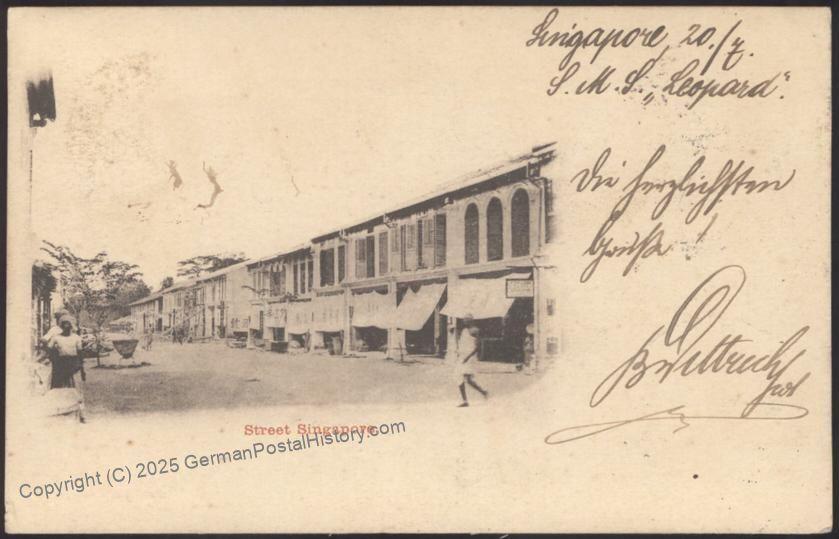 Singapore, 20./7.
S. M. S. „Leopard“.
Die herzlichsten
Grüße!
Street Singapore.
Copyright (C) 2025 GermanPostalHistory.com